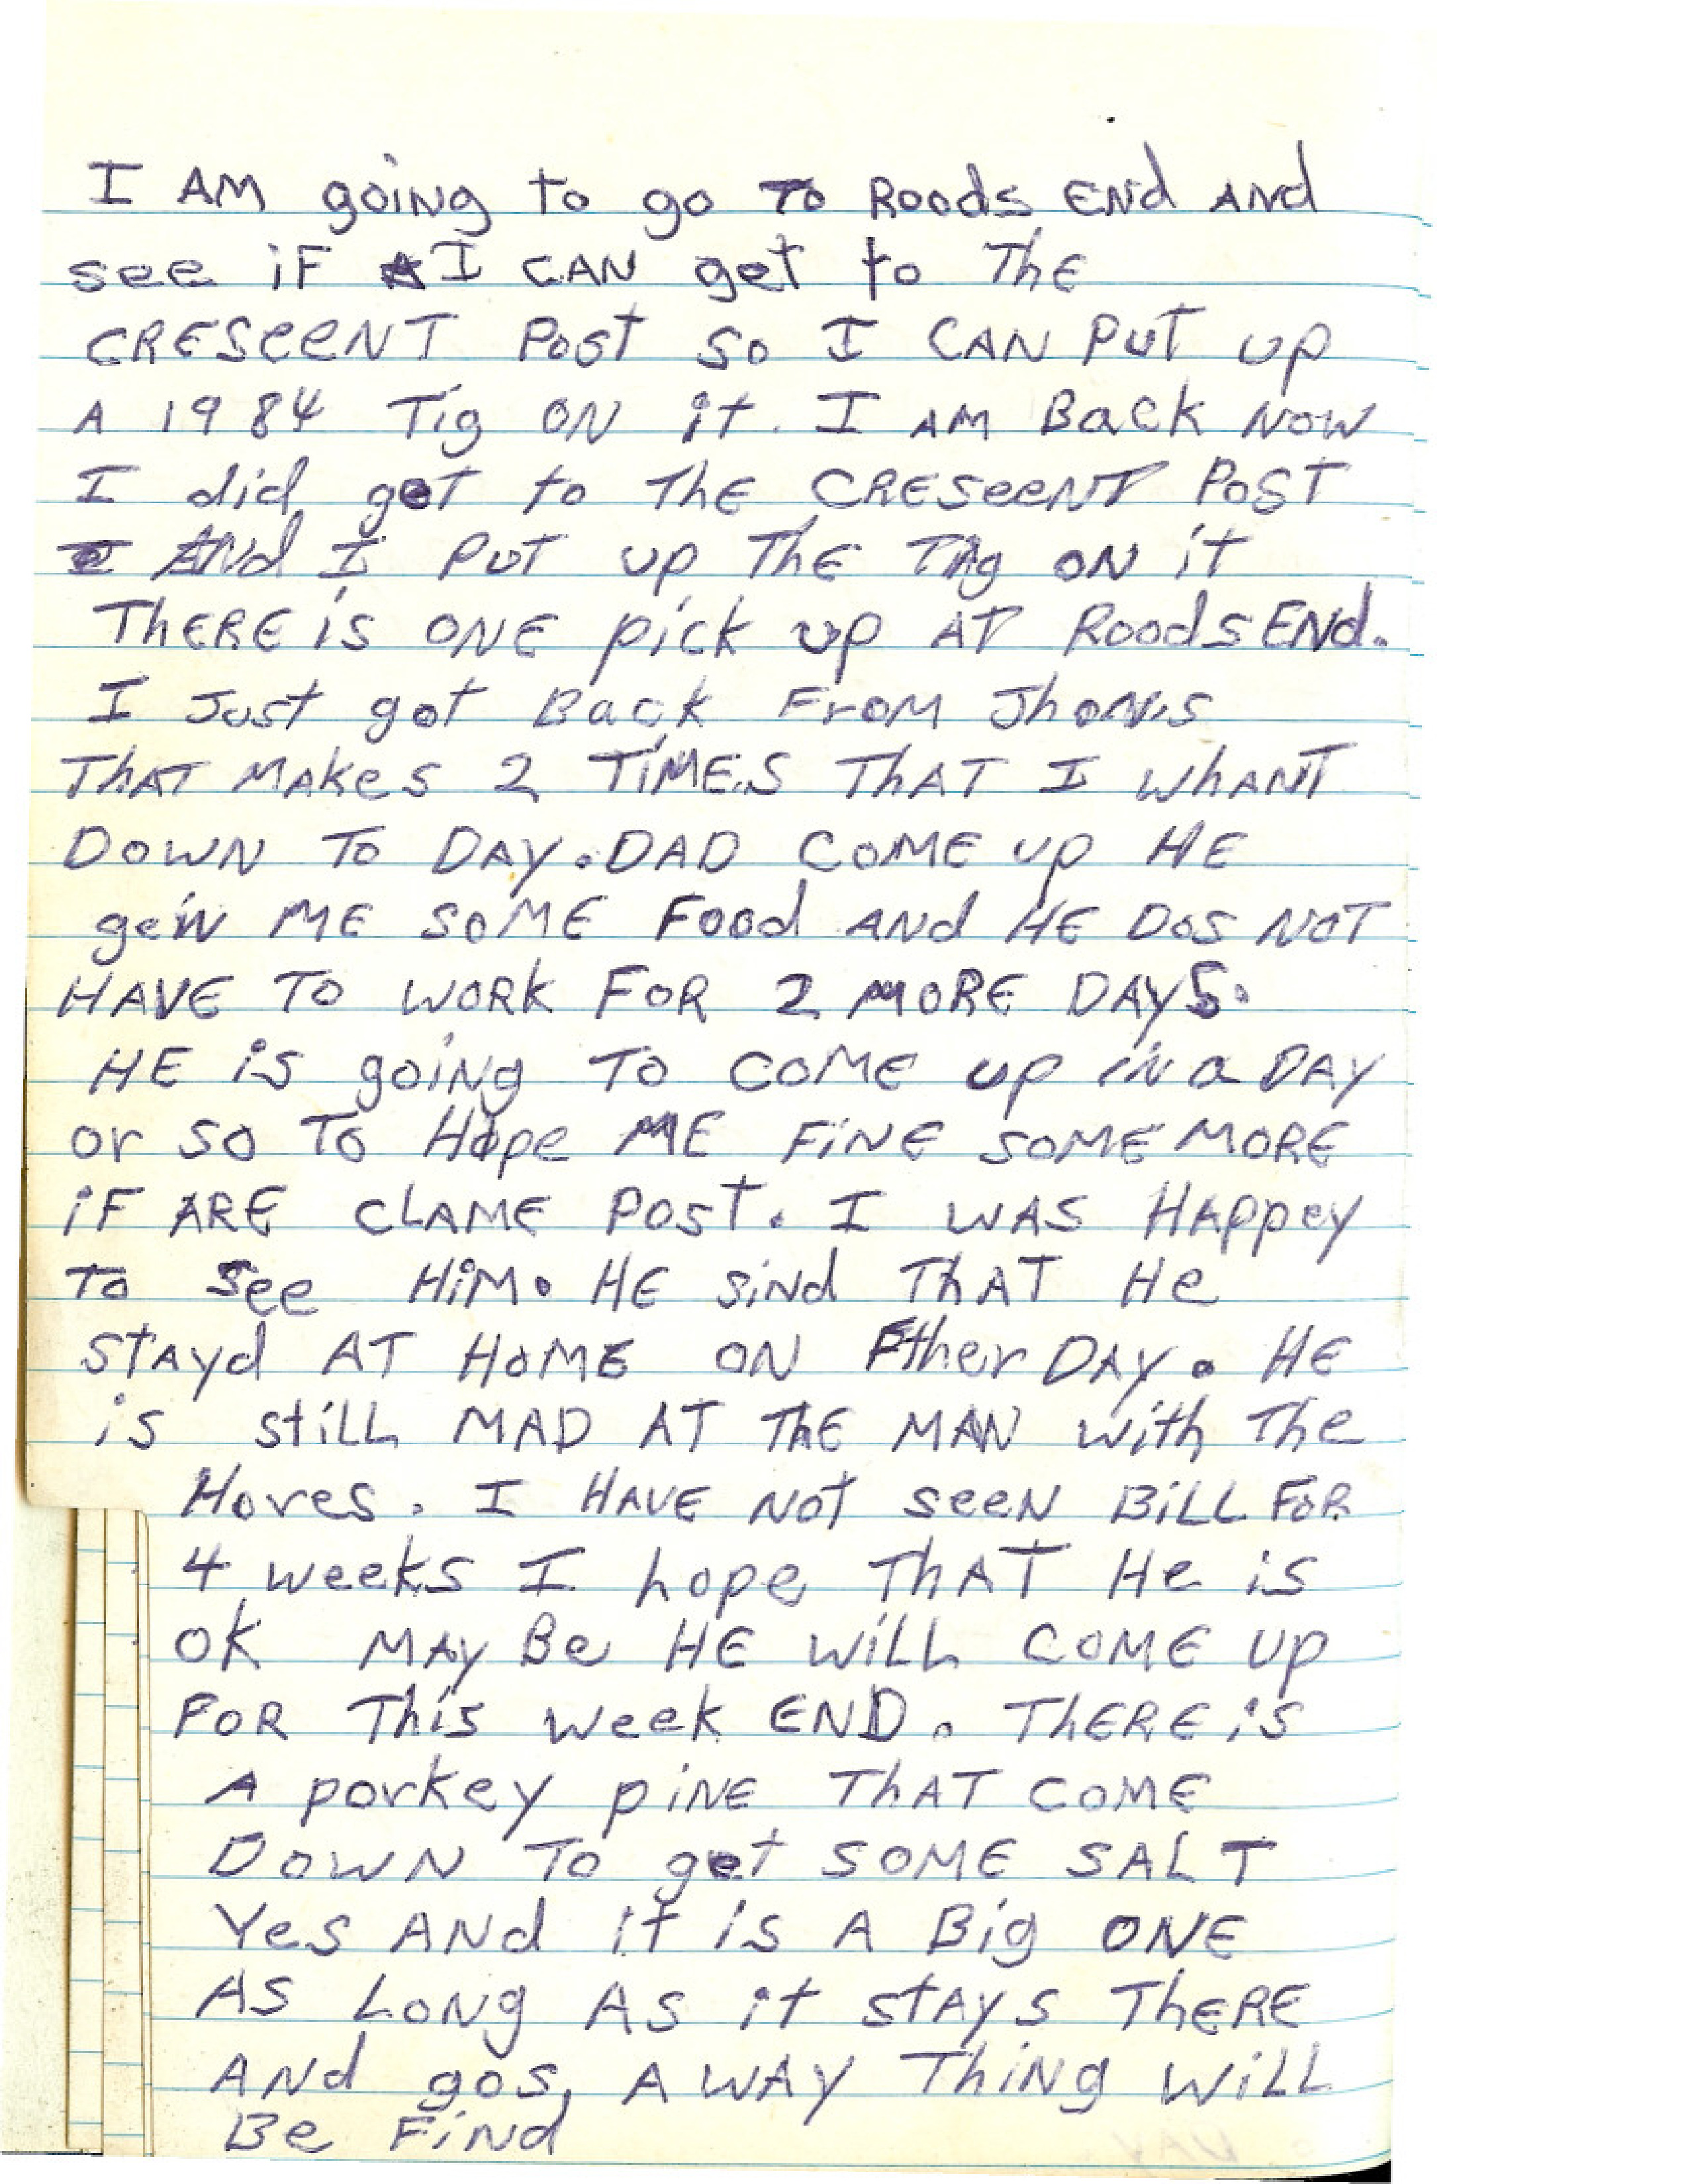 I AM going to go To Roods END AND
see iF I CAN get to The
CRESeeNT Post So I CAN PUT up
A 1984 Tig ON it. I AM Back NOW
I did get to The CRESeeNT POST
AND I PUT up The TAg ON it
THERE is ONE pick up AT Roods END.
I Just got Back From Jhon,s
THAT MAKes 2 TIMES THAT I WhANT
DOWN TO DAY. DAD COME up HE
gein ME SOME Food AND HE DOS NOT
HAVE TO WORK FOR 2 MORE DAYS.
HE is going TO COME up in a DAY
or so TO Hope ME FiNE SOME MORE
iF ARE CLAME POST. I WAS HAppey
To See HiM. HE siNd THAT He
STAYd AT HOME ON Fther DAY. HE
is stiLL MAD AT THE MAN with The
Hores. I HAVE NOT seeN BiLL FOR
4 weeks I hope THAT He is
OK MAY Be HE WiLL COME UP
FOR This week END. THERE is
A porkey piNE THAT COME
DOWN TO get SOME SALT
Yes AND it is A Big ONE
AS LONg AS it stAYS THERE
AND gos, AWAY ThiNg WiLL
Be FiNd